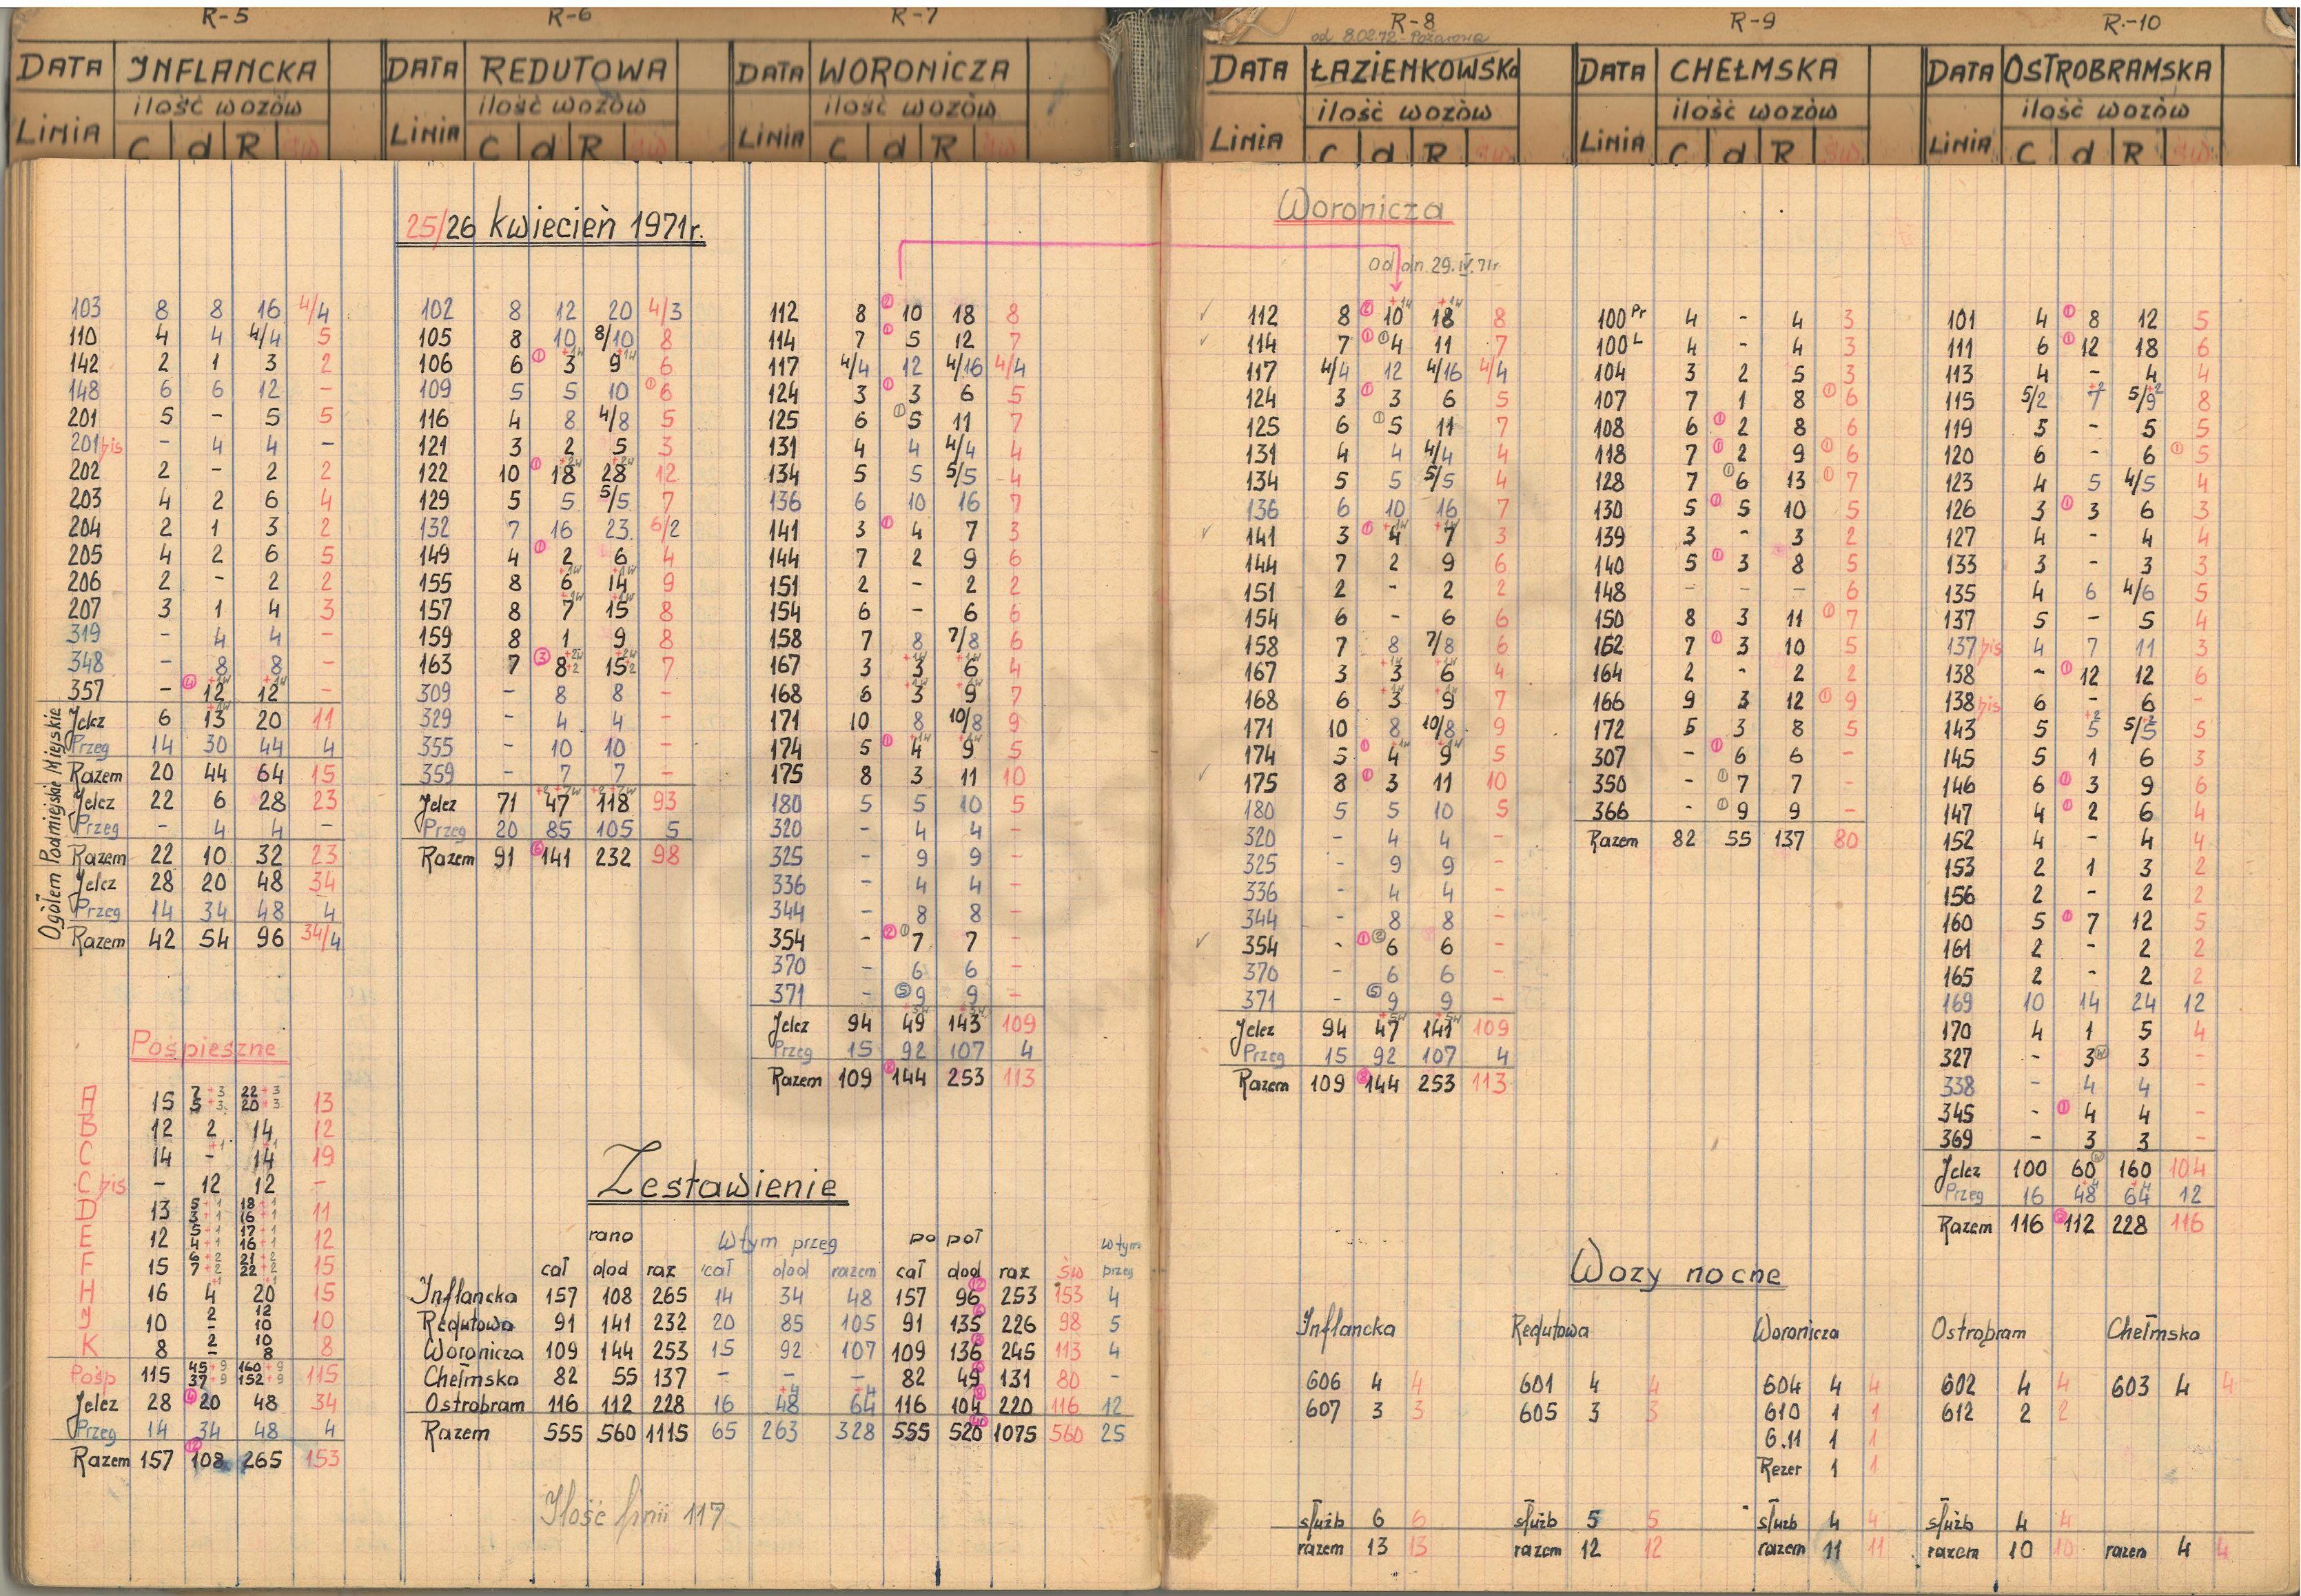 R-5 R-6 R-7 R-8 R-9 R-10
od 8.02.72 - Pożarowa
DATA INFLANCKA DATA REDUTOWA DATA WORONICZA DATA ŁAZIENKOWSKA DATA CHEŁMSKA DATA OSTROBRAMSKA
ilość wozów ilość wozów ilość wozów ilość wozów ilość wozów ilość wozów
LINIA C d R św LINIA C d R św LINIA C d R św LINIA C d R św LINIA C d R św LINIA C d R św
25/26 kwiecień 1971r.
103 8 8 16 4/4
110 4 4 4/4 5
142 2 1 3 2
148 6 6 12 -
201 5 - 5 5
201 bis - 4 4 -
202 2 - 2 2
203 4 2 6 4
204 2 1 3 2
205 4 2 6 5
206 2 - 2 2
207 3 1 4 3
319 - 4 4 -
348 - 8 8 -
357 - ④ 12 +1w 12 +1w -
Ogółem Podmiejskie Miejskie
Jelcz 6 13 +1w 20 11
Przeg 14 30 44 4
Razem 20 44 64 15
Jelcz 22 6 28 23
Przeg - 4 4 -
Razem 22 10 32 23
Jelcz 28 20 48 34
Przeg 14 34 48 4
Razem 42 54 96 34/4
Pośpieszne
A 15 7+3 5+3 22+3 20+3 13
B 12 2 14 12
C 14 - +1 14 +1 19
C bis - 12 12 -
D 13 5+1 3+1 18+1 16+1 11
E 12 5+1 4+1 17+1 16+1 12
F 15 6+2 7+2 21+2 22+2 15
H 16 4 +1 20 +1 15
J 10 2 - 12 10 10
K 8 2 - 10 8 8
Pośp 115 45+9 37+9 160+9 152+9 115
Jelcz 28 ④ 20 48 34
Przeg 14 34 48 4
Razem 157 ⑫ 108 265 153
102 8 12 20 4/3
105 8 10 8/10 8
106 6 ① 3 +1w 9 +1w 6
109 5 5 10 ① 6
116 4 8 4/8 5
121 3 2 5 3
122 10 ① 18 +2w 28 +2w 12
129 5 5 5/5 7
132 7 16 23 6/2
149 4 ① 2 6 4
155 8 6 +1w 14 +1w 9
157 8 7 +1w 15 +1w 8
159 8 1 9 8
163 7 ③ 8+2 +2w 15+2 +2w 7
309 - 8 8 -
329 - 4 4 -
355 - 10 10 -
359 - 7 7 -
Jelcz 71 47 +2 +7w 118 +2 +7w 93
Przeg 20 85 105 5
Razem 91 ⑥ 141 232 98
112 8 ② 10 18 8
114 7 ① 5 12 7
117 4/4 12 4/16 4/4
124 3 ① 3 6 5
125 6 ① 5 11 7
131 4 4 4/4 4
134 5 5 5/5 4
136 6 10 16 7
141 3 ① 4 7 3
144 7 2 9 6
151 2 - 2 2
154 6 - 6 6
158 7 8 7/8 6
167 3 3 +1w 6 +1w 4
168 6 3 +1w 9 +1w 7
171 10 8 10/8 9
174 5 ① 4 +1w 9 +1w 5
175 8 3 11 10
180 5 5 10 5
320 - 4 4 -
325 - 9 9 -
336 - 4 4 -
344 - 8 8 -
354 - ② ① 7 7 -
370 - 6 6 -
371 - ⑤ 9 9 -
Jelcz 94 49 +3w 143 +3w 109
Przeg 15 92 107 4
Razem 109 ⑧ 144 253 113
Zestawienie
rano W tym przeg po poł w tym
cał dod raz cał dod razem cał dod raz św przeg
Inflancka 157 108 265 14 34 48 157 96 ⑫ 253 153 4
Redutowa 91 141 232 20 85 105 91 135 ⑥ 226 98 5
Woronicza 109 144 253 15 92 107 109 136 ⑧ 245 113 4
Chełmska 82 55 137 - - - 82 49 ⑥ 131 80 -
Ostrobram 116 112 228 16 48 +4 64 +4 116 104 ⑧ 220 116 12
Razem 555 560 1115 65 263 328 555 520 ㊵ 1075 560 25
Ilość linii 117
Woronicza
Od dn. 29.IV.71r.
✓ 112 8 ② 10 +1w 18 +1w 8
✓ 114 7 ① ① 4 11 7
117 4/4 12 4/16 4/4
124 3 ① 3 6 5
125 6 ① 5 11 7
131 4 4 4/4 4
134 5 5 5/5 4
136 6 10 16 7
✓ 141 3 ① 4 +1w 7 +1w 3
144 7 2 9 6
151 2 - 2 2
154 6 - 6 6
158 7 8 7/8 6
167 3 3 +1w 6 +1w 4
168 6 3 +1w 9 +1w 7
171 10 8 10/8 9
174 5 ① 4 +1w 9 +1w 5
✓ 175 8 ① 3 11 10
180 5 5 10 5
320 - 4 4 -
325 - 9 9 -
336 - 4 4 -
344 - 8 8 -
✓ 354 - ① ② 6 6 -
370 - 6 6 -
371 - ⑤ 9 9 -
Jelcz 94 47 +5w 141 +5w 109
Przeg 15 92 107 4
Razem 109 ⑧ 144 253 113
100 Pr 4 - 4 3
100 L 4 - 4 3
104 3 2 5 3
107 7 1 8 ① 6
108 6 ① 2 8 6
118 7 ① 2 9 ① 6
128 7 ① 6 13 ① 7
130 5 ① 5 10 5
139 3 - 3 2
140 5 ① 3 8 5
148 - - - 6
150 8 3 11 ① 7
162 7 ① 3 10 5
164 2 - 2 2
166 9 3 12 ① 9
172 5 3 8 5
307 - ① 6 6 -
350 - ① 7 7 -
366 - ① 9 9 -
Razem 82 55 137 80
101 4 ① 8 12 5
111 6 ① 12 18 6
113 4 - 4 4
115 5/2 7 +2 5/9 +2 8
119 5 - 5 5
120 6 - 6 ① 5
123 4 5 4/5 4
126 3 ① 3 6 3
127 4 - 4 4
133 3 - 3 3
135 4 6 4/6 5
137 5 - 5 4
137 bis 4 7 11 3
138 - ① 12 12 6
138 bis 6 - 6 -
143 5 5 +2 5/5 +2 5
145 5 1 6 3
146 6 ① 3 9 6
147 4 ① 2 6 4
152 4 - 4 4
153 2 1 3 2
156 2 - 2 2
160 5 ① 7 12 5
161 2 - 2 2
165 2 - 2 2
169 10 14 24 12
170 4 1 5 4
327 - 3 w 3 -
338 - 4 4 -
345 - ① 4 4 -
369 - 3 3 -
Jelcz 100 60 w 160 104
Przeg 16 48 +4 64 +4 12
Razem 116 ⑧ 112 228 116
Wozy nocne
Inflancka Redutowa Woronicza Ostrobram Chełmska
606 4 4 601 4 4 604 4 4 602 4 4 603 4 4
607 3 3 605 3 3 610 1 1 612 2 2
6.11 1 1
Rezer 1 1
służb 6 6 służb 5 5 służb 4 4 służb 4 4
razem 13 13 razem 12 12 razem 11 11 razem 10 10 razem 4 4